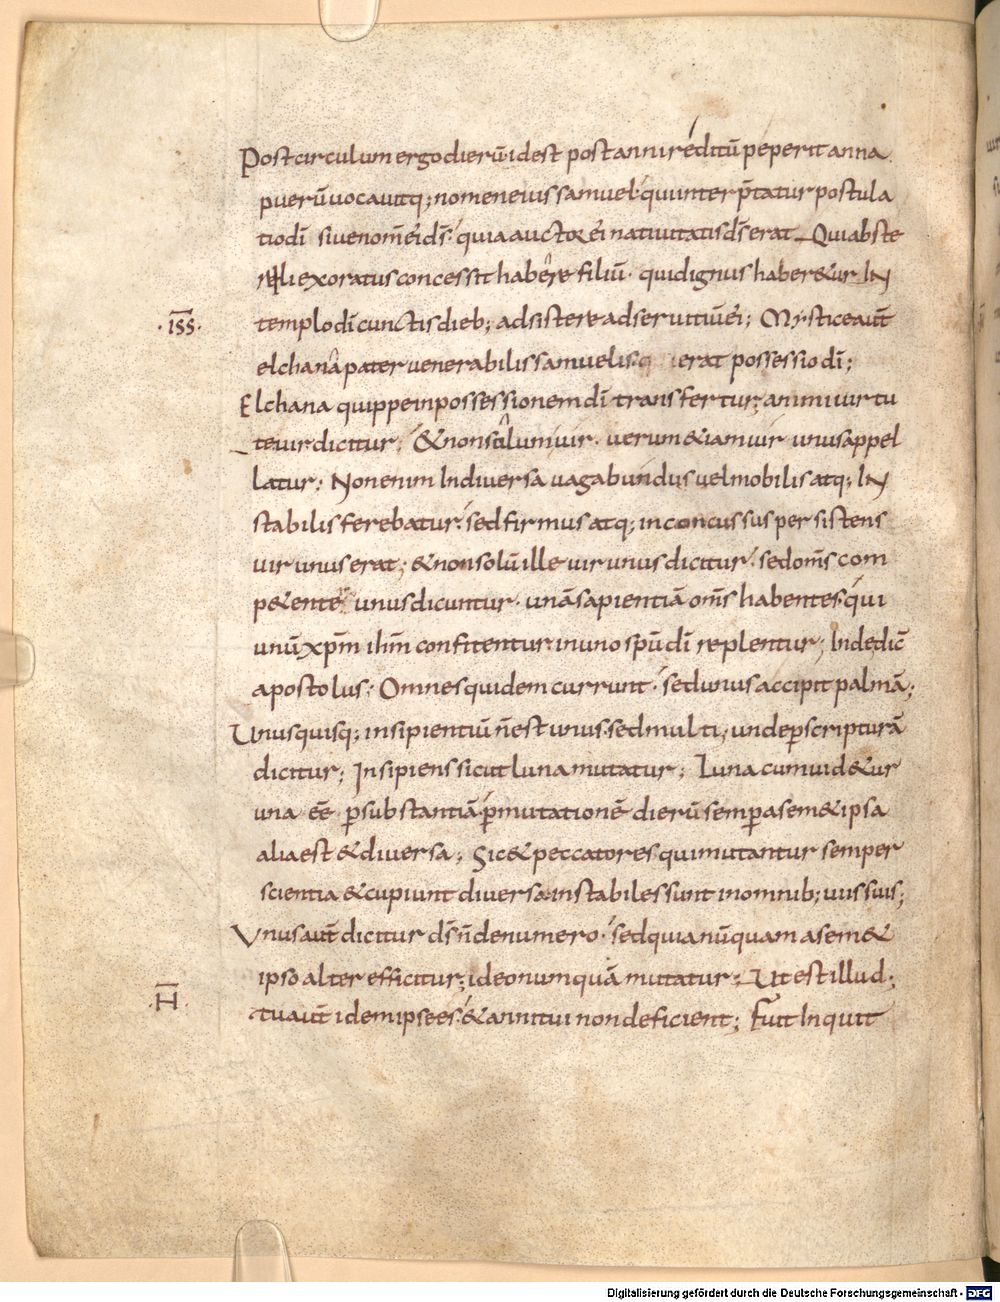 Post circulum ergo dierū· id est post anni réditū peperit anna
puerū uocauitq; nomen eius samuel· qui interp̄tatur postula
tio dī siue nom̄ ei ds̄· quia auctor ei natiuitatis ds̄ erat Qui ab ste
rili exoratus concessit habere filiū· qui dignus haberetur IN
·iss̄· templo dī cunctis dieb; adsistere ad seruitiū ei; Mystice aut̄
elchana pater uenerabilis samuelis erat possessio dī;
Elchana quippe in possessionem dī transfertur; animi uirtu
te uir dicitur; & non solum uir· uerum & iam uir unus appel
latur; Non enim In diuersa uagabundus uel mobilis atq; IN
stabilis ferebatur· sed firmus atq; inconcussus persistens
uir unus erat; & non solū ille uir unus dicitur· sed om̄s com
p&ente unus dicuntur· unā sapientiā om̄s habentes· qui
unū xp̄m ihm̄ confitentur· in uno spū dī replentur; Inde dic̄
apostolus· Omnes quidem currunt· sed unus accipit palmā;
Unusquisq; insipientiū n̄ est unus· sed multi, unde per scripturā
dicitur; Insipiens sicut luna mutatur; Luna cum uid&ur
una eē p substantiā· p mutationē dierū semp a sem&ipsa
alia est & diuersa; Sic & peccatores· qui mutantur semper
scientia & cupiunt diuersa· instabiles sunt in omnib; uiis suis;
Unus aut̄ dicitur ds̄ n̄ de numero· sed quia nūquam a sem&
ipso alter efficitur; ideo numquā mutatur; Ut est illud;
·H̄· tu aut̄ idem ipse es· & anni tui non deficient; Fuit Inquit
Digitalisierung gefördert durch die Deutsche Forschungsgemeinschaft - DFG